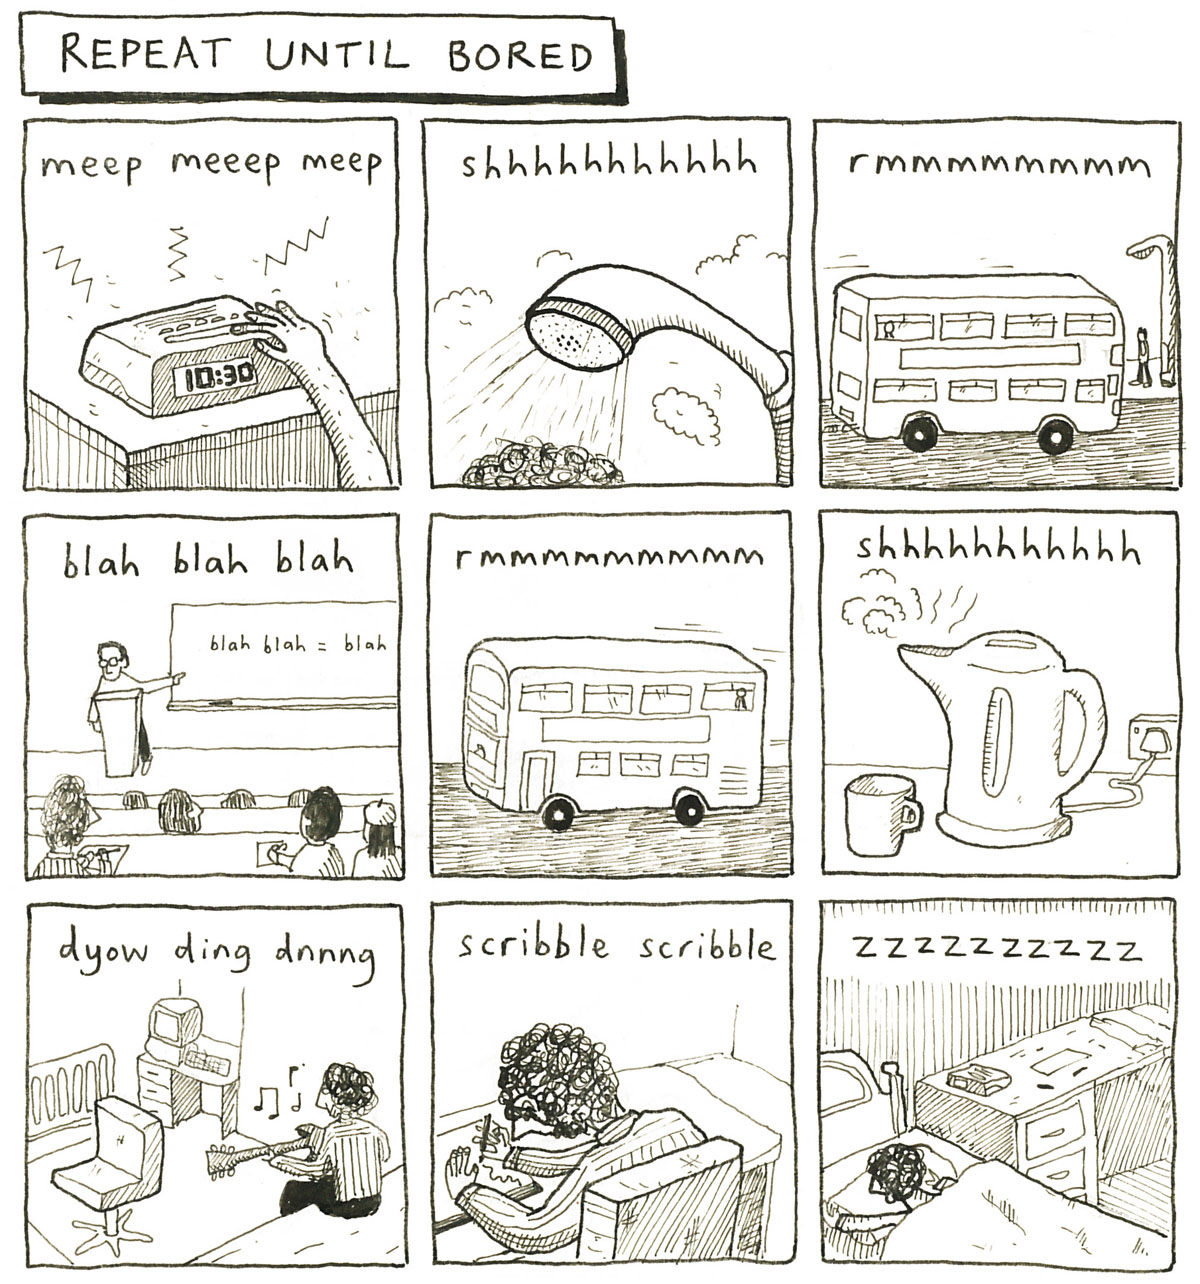 REPEAT UNTIL BORED
meep meeep meep
10:30
shhhhhhhhhhh
rmmmmmmmmm
blah blah blah
blah blah = blah
rmmmmmmmmmm
shhhhhhhhhhh
dyow ding dnnng
scribble scribble
zzzzzzzzzz